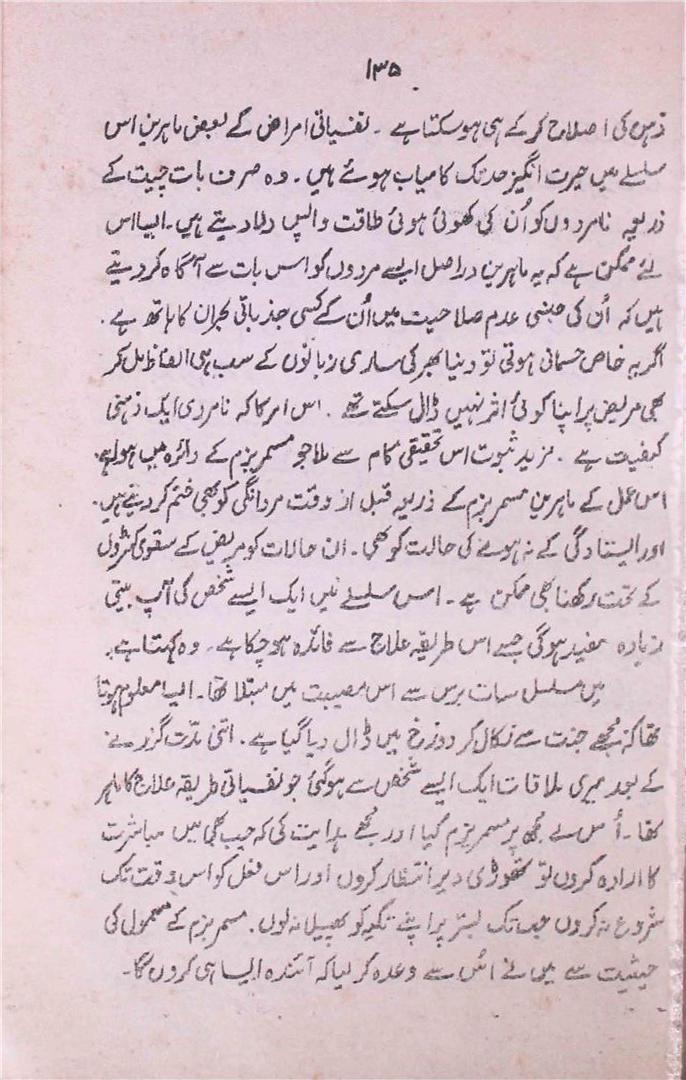 ۱۳۵
ذہن کی اصلاح کر کے ہی ہو سکتا ہے ۔ نفسیاتی امراض کے بعض ماہرین اس
سلسلے میں حیرت انگیز حد تک کامیاب ہوئے ہیں ۔ وہ صرف بات چیت کے
ذریعہ نامردوں کو اُن کی کھوئی ہوئی طاقت واپس دلا دیتے ہیں ۔ ایسا اس
لئے ممکن ہے کہ یہ ماہرین دراصل ایسے مردوں کو اس بات سے آگاہ کر دیتے
ہیں کہ اُن کی جنسی عدم صلاحیت میں اُن کے کسی جذباتی بحران کا ہاتھ ہے ۔
اگر یہ خاص جسمانی ہوتی تو دنیا بھر کی ساری زبانوں کے سب ہی الفاظ مل کر
بھی مریض پر اپنا کوئی اثر نہیں ڈال سکتے تھے ۔ اس امر کا کہ نامردی ایک ذہنی
کیفیت ہے ۔ مزید ثبوت اس تحقیقی کام سے ملا جو مسمریزم کے دائرہ میں ہوا ہے ۔
اس عمل کے ماہرین مسمریزم کے ذریعہ قبل از وقت مردانگی کو بھی ختم کر دیتے ہیں ۔
اور ایستادگی کے نہ ہونے کی حالت کو بھی ۔ ان حالات کو مریض کے کنٹرول
کے تحت رکھنا بھی ممکن ہے ۔ اس سلسلے میں ایک ایسے شخص کی آپ بیتی
زیادہ مفید ہوگی جسے اس طریقہ علاج سے فائدہ ہو چکا ہے ۔ وہ کہتا ہے :
میں مسلسل سات برس سے اس مصیبت میں مبتلا تھا ۔ ایسا معلوم ہوتا
تھا کہ مجھے جنت سے نکال کر دوزخ میں ڈال دیا گیا ہے ۔ اتنی مدّت گزرنے
کے بعد میری ملاقات ایک ایسے شخص سے ہو گئی جو نفسیاتی طریقہ علاج کا ماہر
تھا ۔ اُس نے مجھ پر مسمریزم کیا اور مجھے ہدایت کی کہ جب بھی میں مباشرت
کا ارادہ کروں تو تھوڑی دیر انتظار کروں اور اس فعل کو اس وقت تک
شروع نہ کروں جب تک بستر پر اپنے تکیہ کو پھیلا نہ لوں ۔ مسمریزم کے معمول کی
حیثیت سے میں نے اُس سے وعدہ کر لیا کہ آئندہ ایسا ہی کروں گا ۔